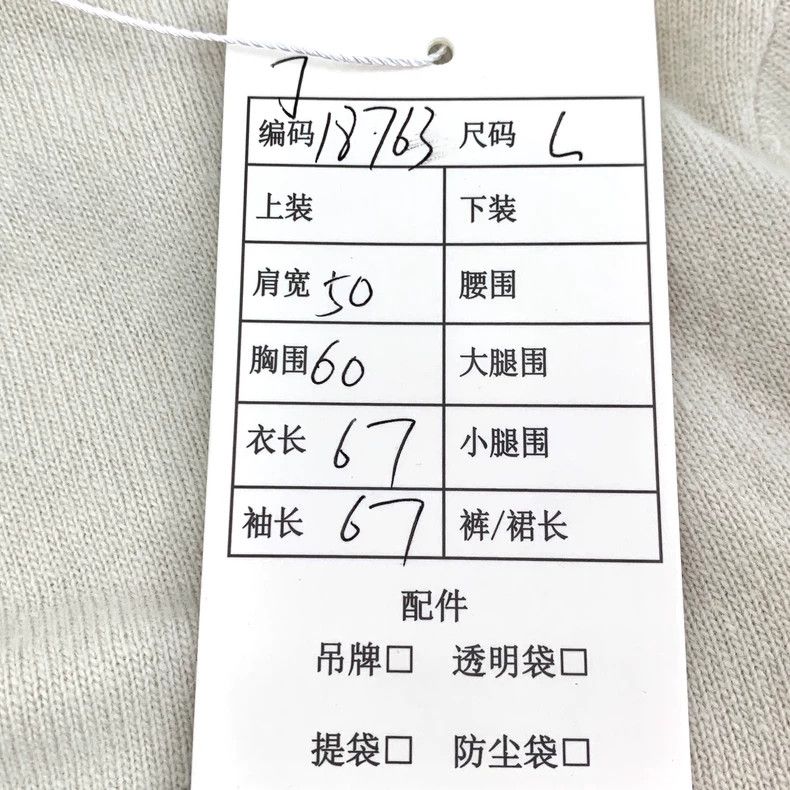 J
编码 18763 尺码 L
上装 下装
肩宽 50 腰围
胸围 60 大腿围
衣长 67 小腿围
袖长 67 裤/裙长
配件
吊牌□ 透明袋□
提袋□ 防尘袋□